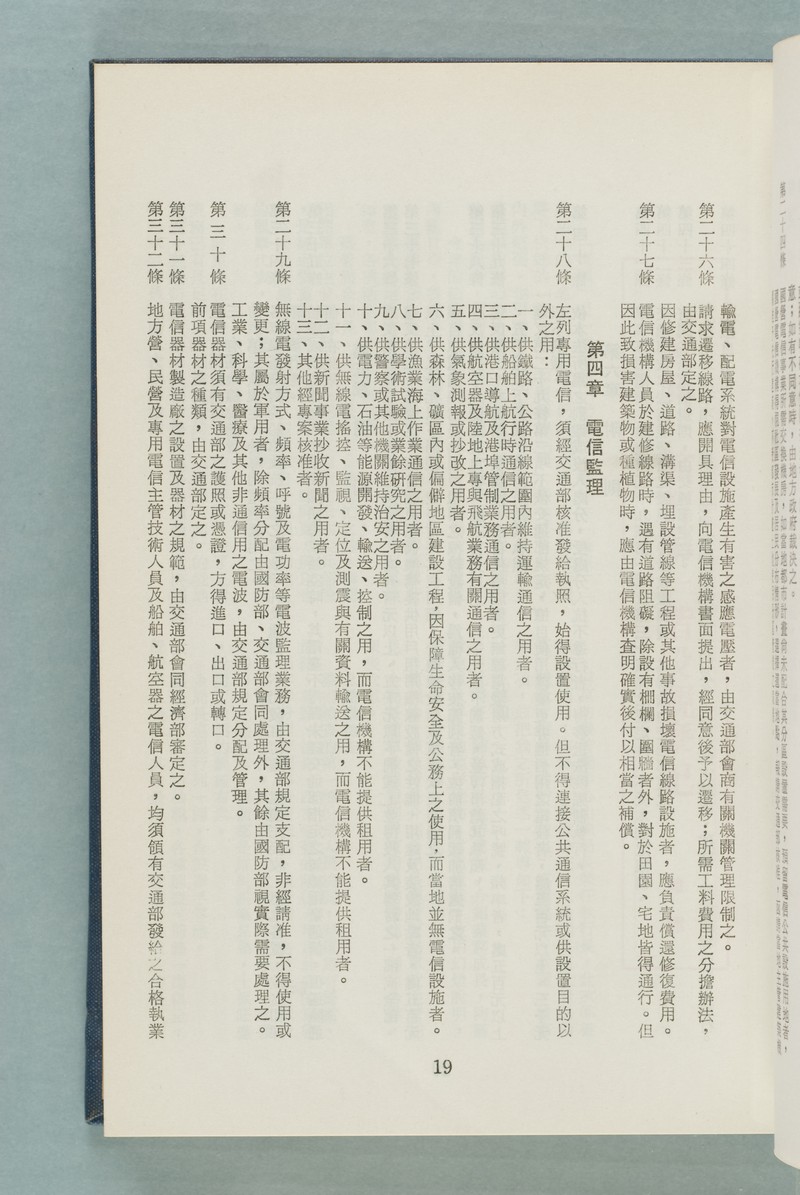 輸電、配電系統對電信設施產生有害之感應電壓者，由交通部會商有關機關管理限制之。
第二十六條　請求遷移線路，應開具理由，向電信機構書面提出，經同意後予以遷移；所需工料費用之分擔辦法，
由交通部定之。
因修建房屋、道路、溝渠、埋設管線等工程或其他事故損壞電信線路設施者，應負責償還修復費用。
第二十七條　電信機構人員於建修線路時，遇有道路阻礙，除設有柵欄、圍牆者外，對於田園、宅地皆得通行。但
因此致損害建築物或種植物時，應由電信機構查明確實後付以相當之補償。
第四章　電信監理
第二十八條　左列專用電信，須經交通部核准發給執照，始得設置使用。但不得連接公共通信系統或供設置目的以
外之用：
一、供鐵路、公路沿線範圍內維持運輸通信之用者。
二、供船舶上航行時通信之用者。
三、供港口導航及港埠管制業務通信之用者。
四、供航空器及陸地上專與飛航業務有關通信之用者。
五、供氣象測報或抄改之用者。
六、供森林、礦區內或偏僻地區建設工程，因保障生命安全及公務上之使用，而當地並無電信設施者。
七、供漁業海上作業通信之用者。
八、供學術試驗或業餘研究之用者。
九、供警察或其他機關維持治安之用者。
十、供電力、石油等能源開發、輸送、控制之用，而電信機構不能提供租用者。
十一、供無線電搖控、監視、定位及測震與有關資料輸送之用，而電信機構不能提供租用者。
十二、供新聞事業抄收新聞之用者。
十三、其他經專案核准者。
第二十九條　無線電發射方式、頻率、呼號及電功率等電波監理業務，由交通部規定支配，非經請准，不得使用或
變更；其屬於軍用者，除頻率分配由國防部、交通部會同處理外，其餘由國防部視實際需要處理之。
工業、科學、醫療及其他非通信用之電波，由交通部規定分配及管理。
第三十條　電信器材須有交通部之護照或憑證，方得進口、出口或轉口。
前項器材之種類，由交通部定之。
第三十一條　電信器材製造廠之設置及器材之規範，由交通部會同經濟部審定之。
第三十二條　地方營、民營及專用電信主管技術人員及船舶、航空器之電信人員，均須領有交通部發給之合格執業
19